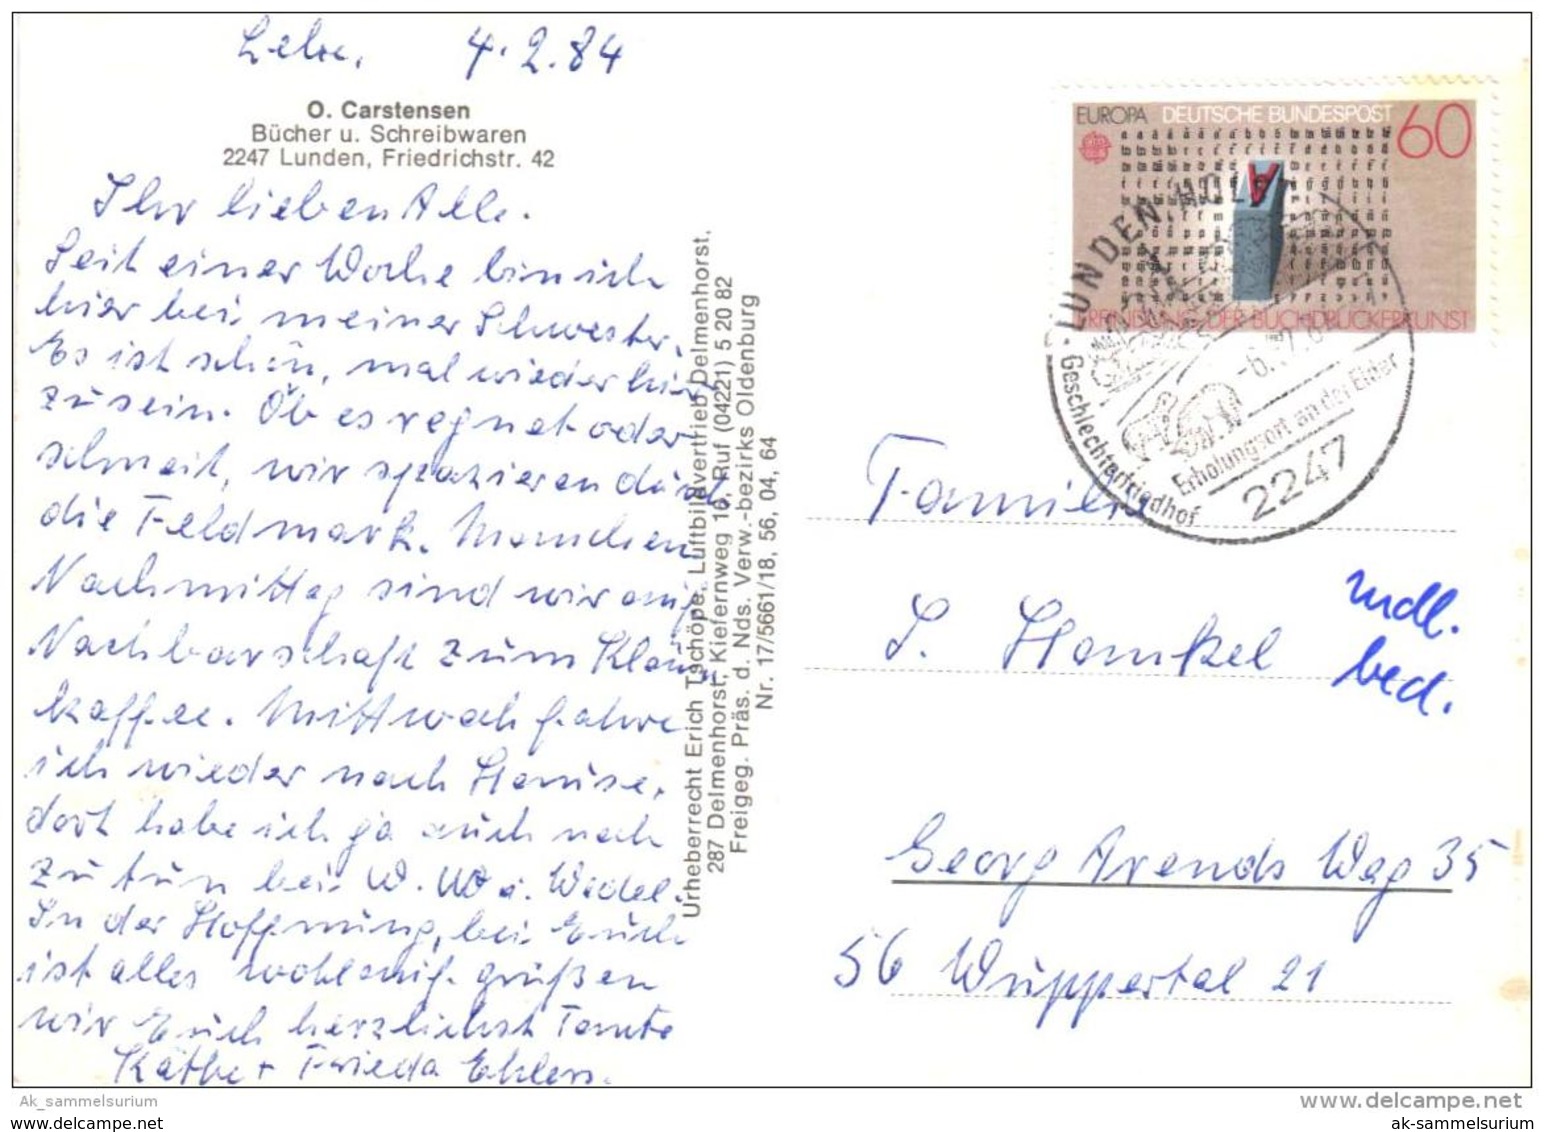 Lehe, 4.2.84
O. Carstensen
Bücher u. Schreibwaren
2247 Lunden, Friedrichstr. 42
Ihr lieben Alle.
Seit einer Woche bin ich
hier bei meiner Schwester.
Es ist schön, mal wieder hier
zu sein. Ob es regnet oder
schneit, wir spazieren durch
die Feldmark. Manchen
Nachmittag sind wir auf
Nachbarschaft zum Klöun
kaffee. Mittwoch fahre
ich wieder nach Hause,
dort habe ich ja auch noch
zu tun bei W. W. Wedel.
In der Hoffnung, bei Euch
ist alles wohlauf. grüßen
wir Euch herzlichst Tante
Käthe + Frieda Ehlers.
Urheberrecht Erich Tschöpe, Luftbildvertrieb Delmenhorst,
287 Delmenhorst, Kiefernweg 16, Ruf (04221) 5 20 82
Freigeg. Präs. d. Nds. Verw.-bezirks Oldenburg
Nr. 17/5661/18, 56, 04, 64
EUROPA DEUTSCHE BUNDESPOST 60
ERFINDUNG DER BUCHDRUCKERKUNST
1983
LUNDEN, HOLST
-6.-2.8
Geschlechterfriedhof
Erholungsort an der Eider
2247
Familie
S. Hankel
mdl.
bed.
Georg Arends Weg 35
56 Wuppertal 21
Ak_sammelsurium
www.delcampe.net
www.delcampe.net
ak-sammelsurium